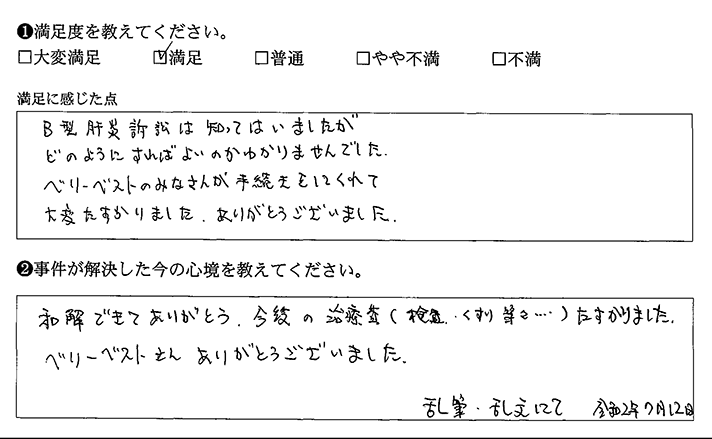 ❶満足度を教えてください。
□大変満足 ☑満足 □普通 □やや不満 □不満
満足に感じた点
B型肝炎訴訟は知ってはいましたが
どのようにすればよいのかわかりませんでした.
ベリーベストのみなさんが手続きをしてくれて
大変たすかりました. ありがとうございました.
❷事件が解決した今の心境を教えてください。
和解できてありがとう. 今後の治療費(検査.くすり等々…)たすかりました.
ベリーベストさん ありがとうございました.
乱筆・乱文にて 令和2年7月12日